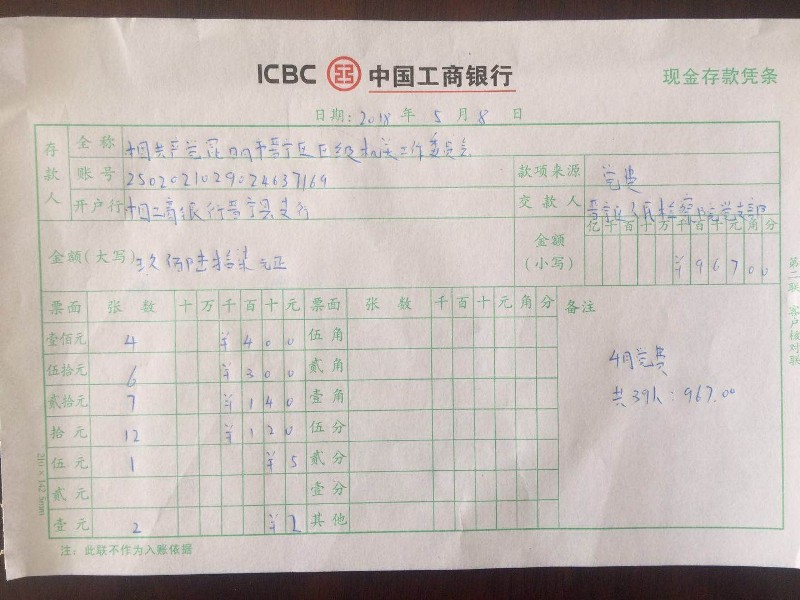 ICBC 中国工商银行
现金存款凭条
日期: 2018 年 5 月 8 日
存款人
全称 中国共产党昆明市晋宁区区级机关工作委员会
账号 2502021029024637169
开户行 中国工商银行晋宁县支行
款项来源 党费
交款人 晋宁区人民检察院党支部
金额(大写) 玖佰陆拾柒元正
金额(小写) 亿 千 百 十 万 千 百 十 元 角 分
¥ 9 6 7 0 0
票面 张数 十 万 千 百 十 元 票面 张数 千 百 十 元 角 分 备注
壹佰元 4 ¥ 4 0 0 伍角
伍拾元 6 ¥ 3 0 0 贰角
贰拾元 7 ¥ 1 4 0 壹角
拾元 12 ¥ 1 2 0 伍分
伍元 1 ¥ 5 贰分
贰元 壹分
壹元 2 ¥ 2 其他
4月党费
共39人:967.00
注:此联不作为入账依据
第二联 客户核对联